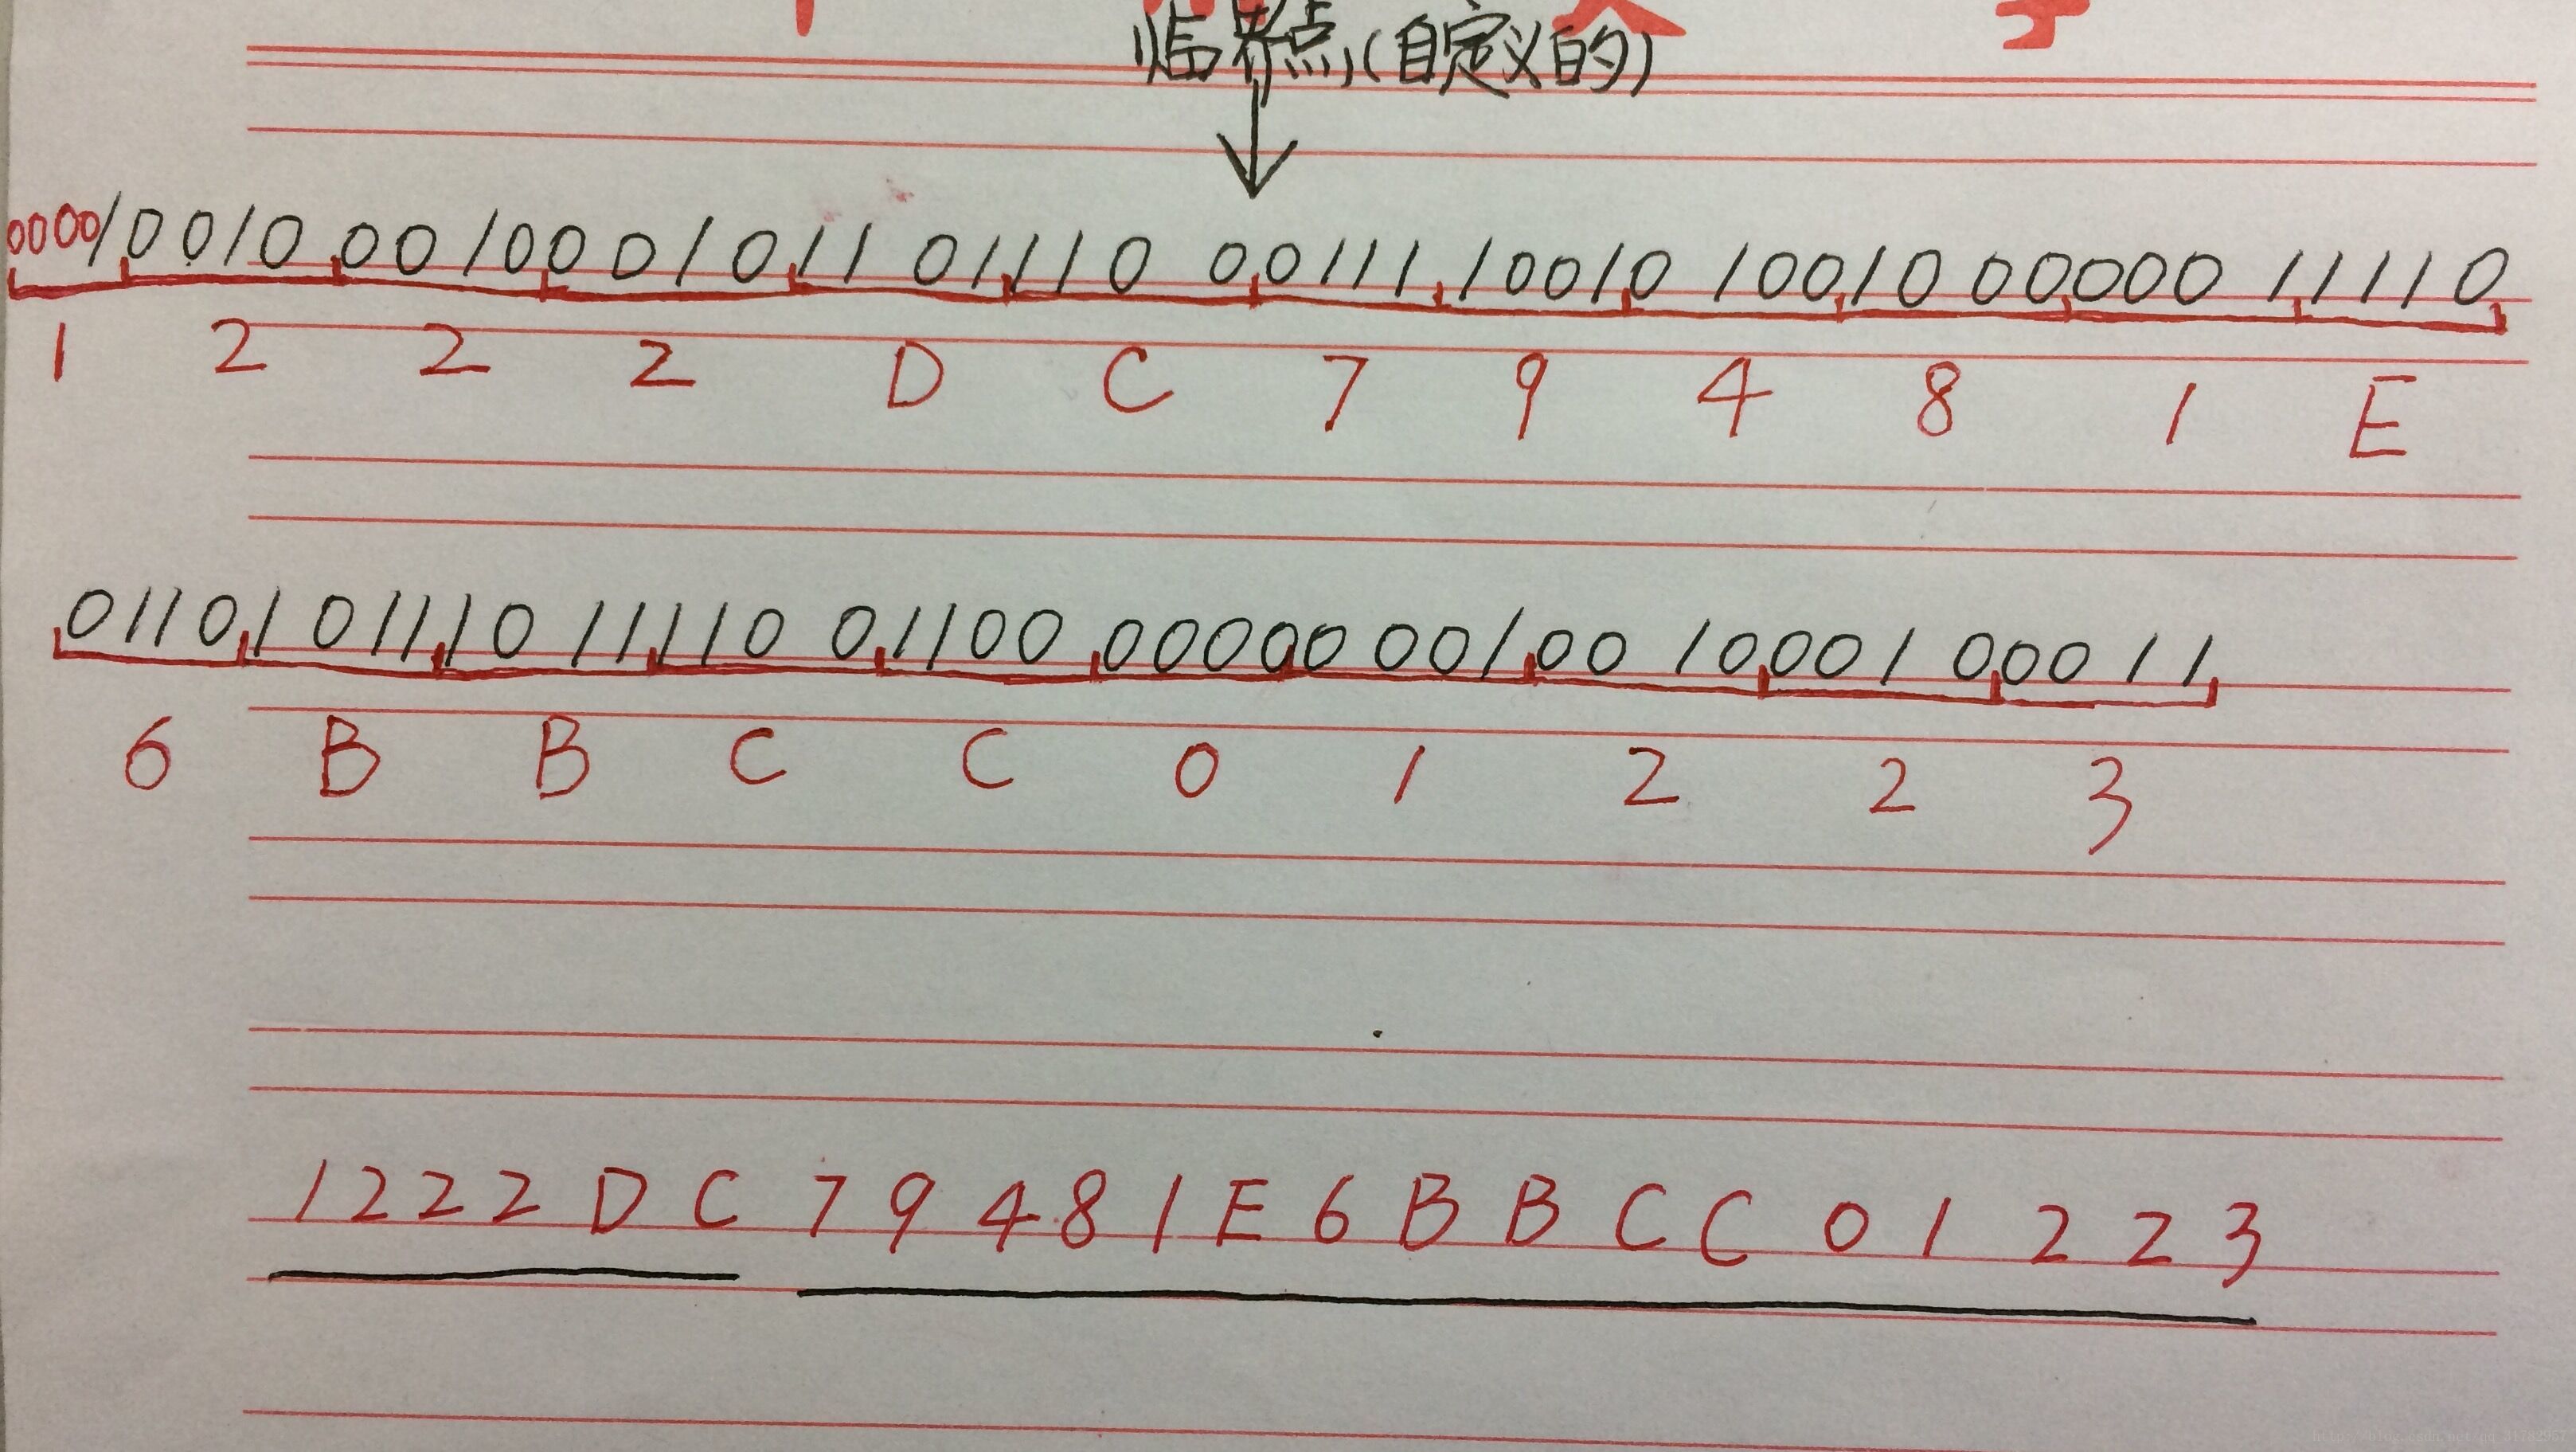 临界点(自定义的)
000010010 00100 01011 01110 00111 10010 10010 00000 11110
1 2 2 2 D C 7 9 4 8 1 E
01101 01110 11110 01100 00000 00100 10001 00011
6 B B C C 0 1 2 2 3
1 2 2 2 D C 7 9 4 8 1 E 6 B B C C 0 1 2 2 3